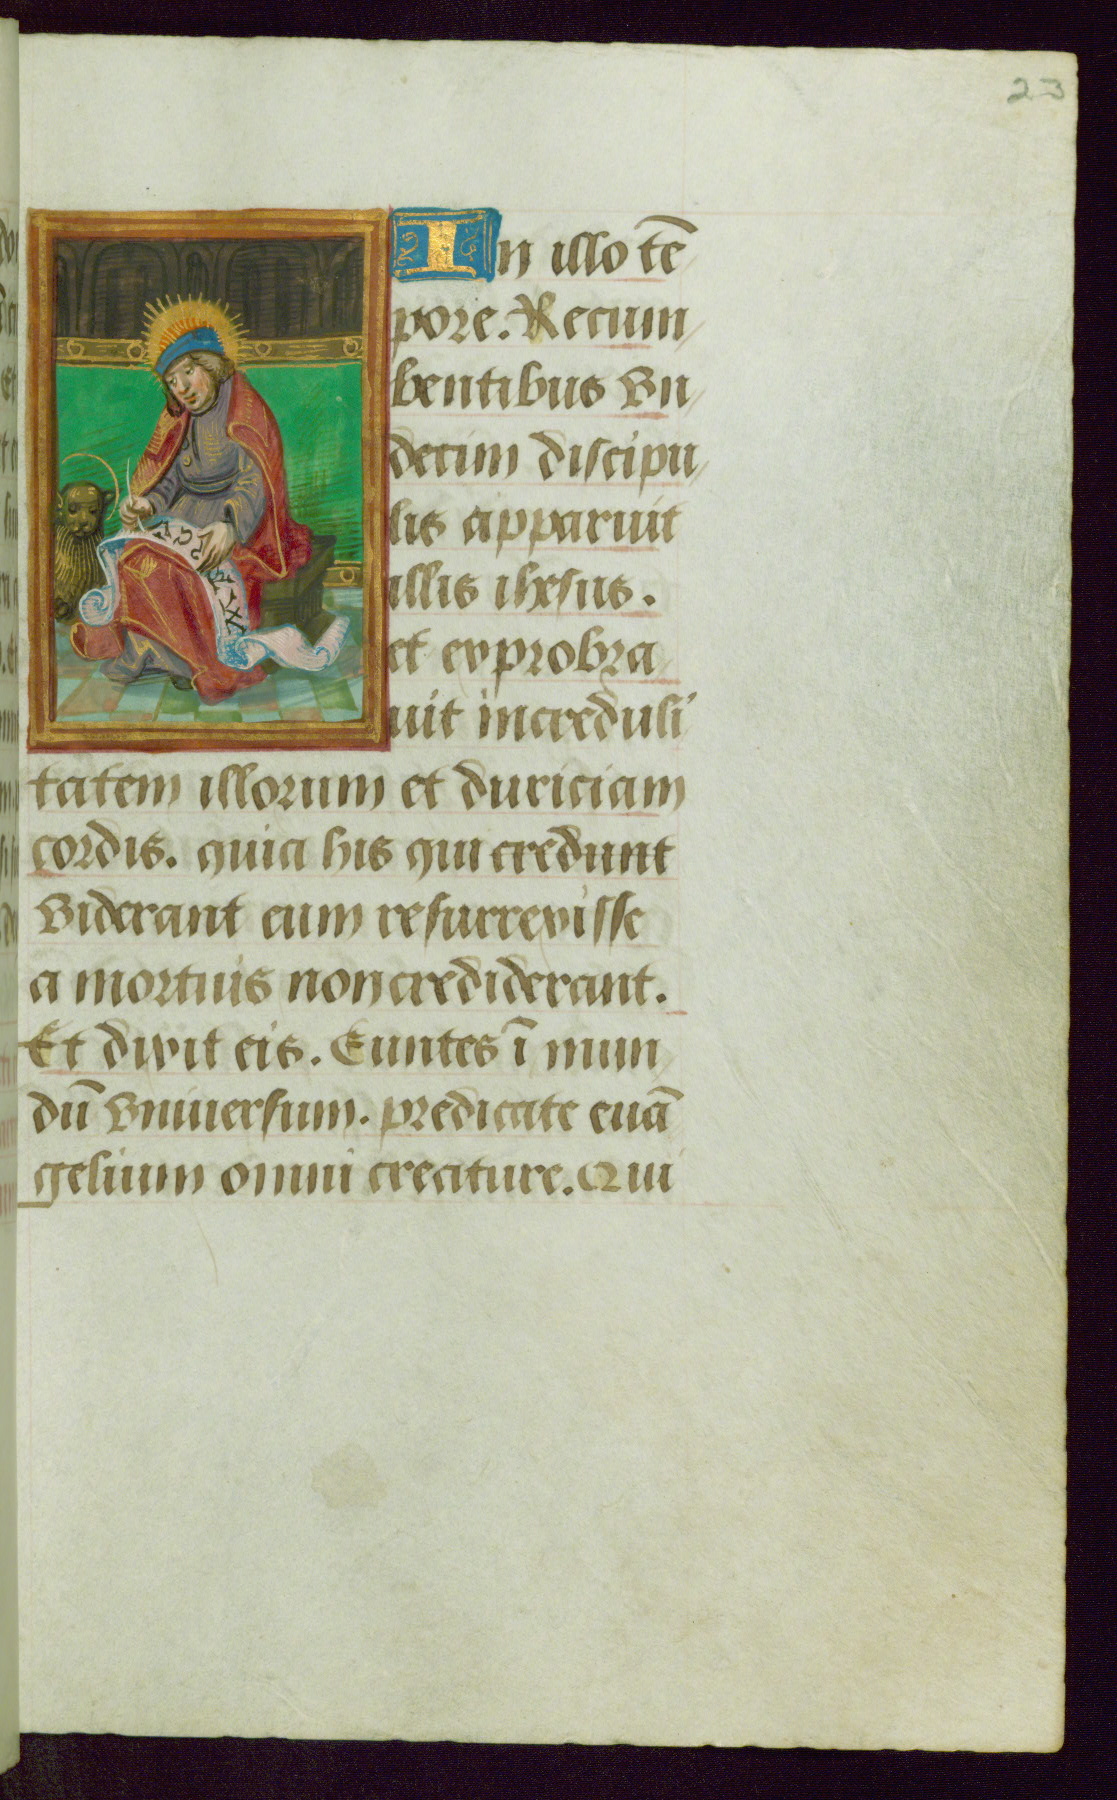 23
In illo tē
pore. Recum
bentibus vn
decim discipu
lis apparuit
illis ihesus.
et exprobra
uit increduli
tatem illorum et duriciam
cordis. quia his qui credunt
viderant eum resurrexisse
a mortuis non crediderant.
Et dixit eis. Euntes ī mun
dū vniuersum. predicate euā
gelium omni creature. Qui